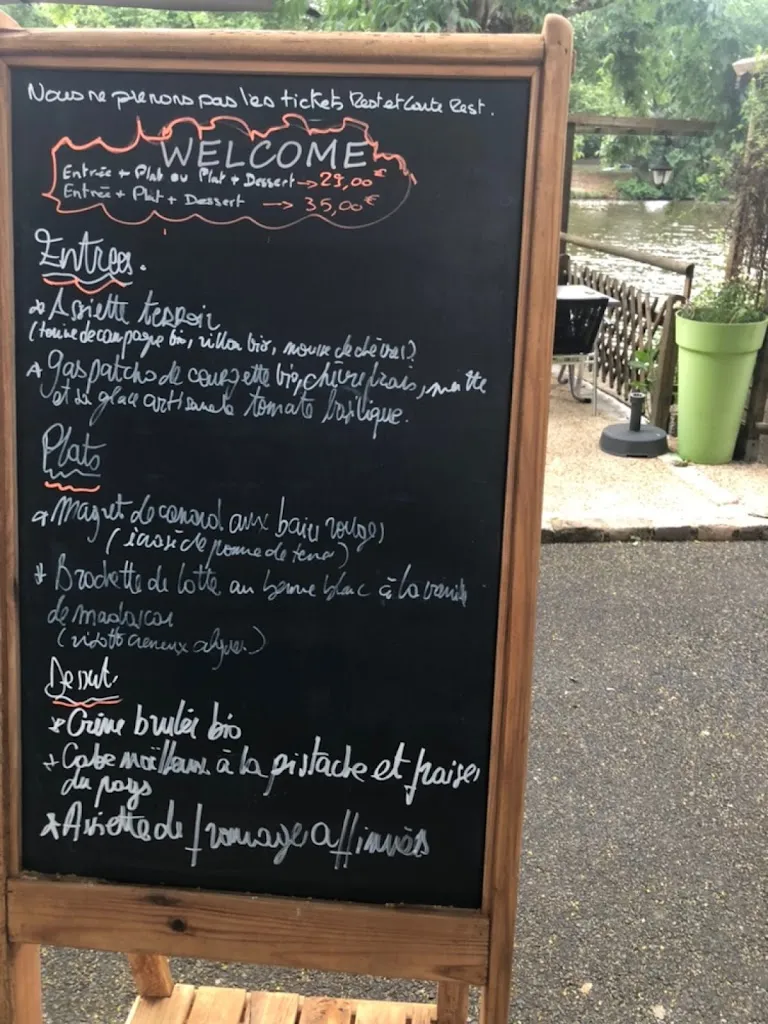 Nous ne prenons pas les tickets Rest et Carte Rest.
WELCOME
Entrée + Plat ou Plat + Dessert → 29,00€
Entrée + Plat + Dessert → 35,00€
Entrees.
Assiette terroir
(terrine de campagne bio, rillon bio, mousse de chèvre)
gaspatcho de courgette bio, chèvre frais, menthe
et sa glace artisanale tomate basilique.
Plats
Magret de canard aux baies rouges
(écrasé de pomme de terre)
Brochette de lotte au beurre blanc à la vanille
de madascar
(risotto cremeux)
Dessert.
Crème brulée bio
Cake moëlleux à la pistache et fraises
du pays
Assiette de fromage affinés